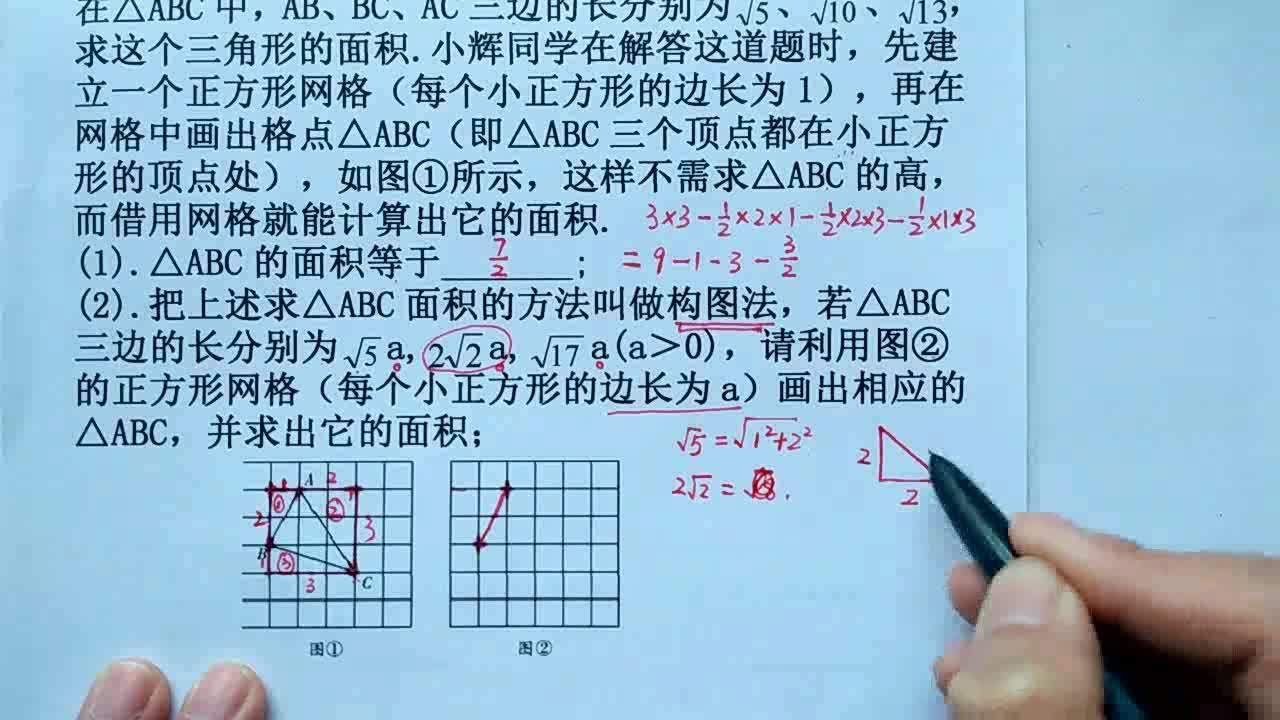 在△ABC 中，AB、BC、AC 三边的长分别为√5、√10、√13，
求这个三角形的面积.小辉同学在解答这道题时，先建
立一个正方形网格（每个小正方形的边长为1），再在
网格中画出格点△ABC（即△ABC 三个顶点都在小正方
形的顶点处），如图①所示，这样不需求△ABC 的高，
而借用网格就能计算出它的面积. 3×3-1/2×2×1-1/2×2×3-1/2×1×3
(1).△ABC 的面积等于 7/2 ; =9-1-3-3/2
(2).把上述求△ABC 面积的方法叫做构图法，若△ABC
三边的长分别为√5 a, 2√2 a, √17 a(a＞0)，请利用图②
的正方形网格（每个小正方形的边长为 a）画出相应的
△ABC，并求出它的面积；
√5=√1²+2²
2√2=
2
2
A 2
① ②
2 3
B ③
1
3 C
图① 图②